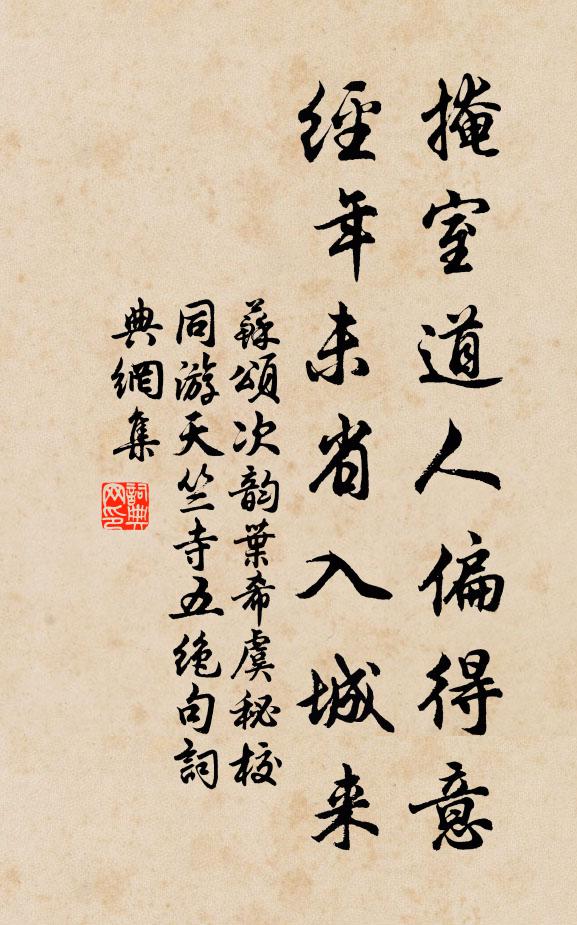 掩室道人偏得意
經年未省入城来
蘇頌次韵葉希虞秘校
同游天竺寺五絶句詞
典網集
詞典网印